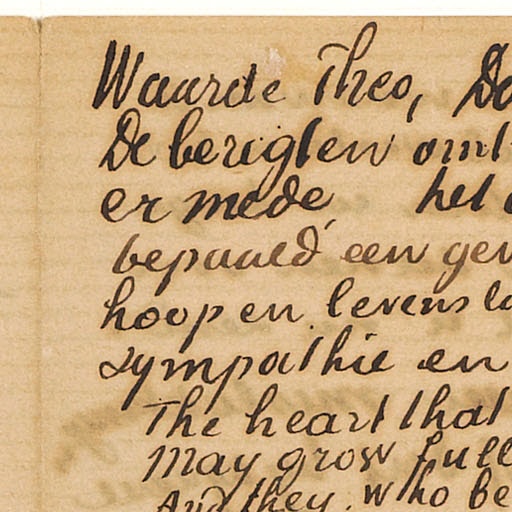 Waarde Theo, Do
De beriglen omt
er mede het
bepaald een gen
hoop en levenslu
sympathie en
The heart that
May grow full
And they who be